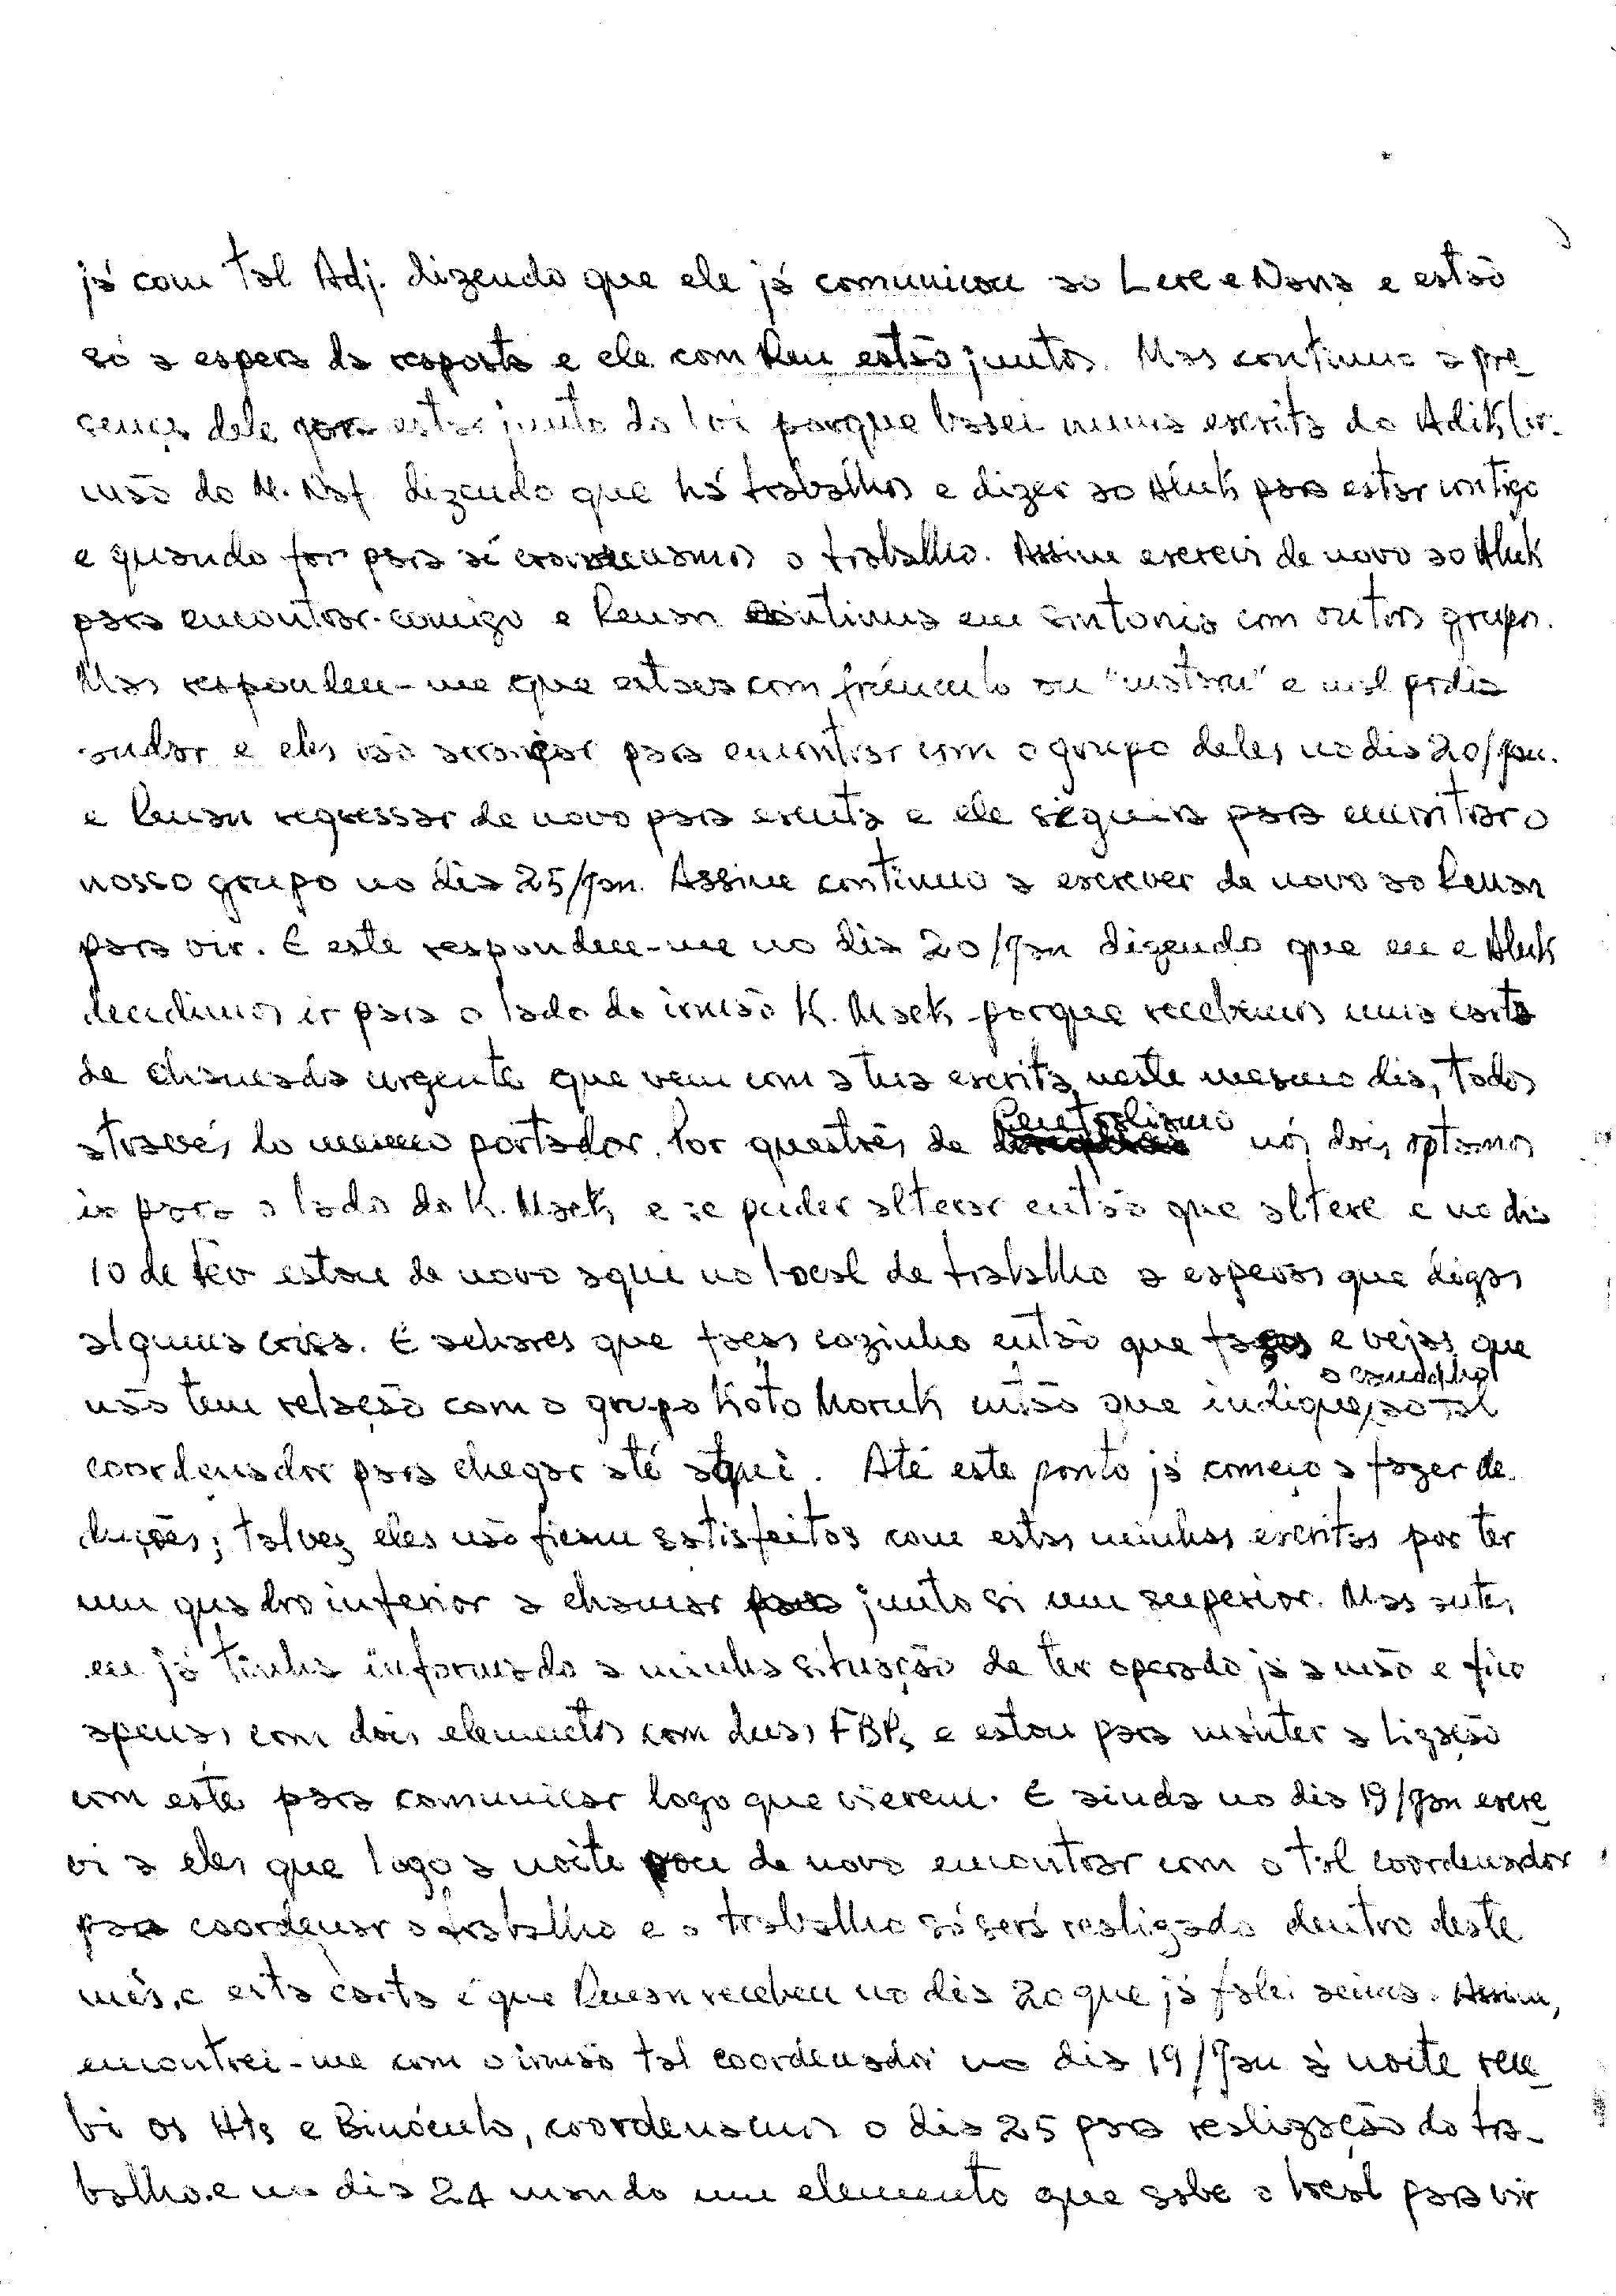 já com tal Adj. dizendo que ele já comunicou ao Lere e Nana e estão
só a espera da resposta e ele com Renan estão juntos. Mas continuo a pre
sença dele para estar junto da Loi porque basei numa escrita do Adik (ir-
mão do M. Naf dizendo que há trabalhos e dizer ao Aluk para estar contigo
e quando for para aí coordenamos o trabalho. Assim escrevi de novo ao Aluk
para encontrar-comigo e Renan continua em sintonia com outros grupos.
Mas respondeu-me que estava com frúnculo ou "matam" e mal podia
andar e eles vão arranjar para encontrar com o grupo deles no dia 20/Jan.
e Renan regressar de novo para escuta e ele seguirá para encontrar o
nosso grupo no dia 25/Jan. Assim continuo a escrever de novo ao Renan
para vir. E este respondeu-me no dia 20/Jan dizendo que eu e Aluk
decidimos ir para o lado do irmão K. Maek porque recebemos uma carta
de chamada urgente que vem com a tua escrita neste mesmo dia, todos
através do mesmo portador. Por questões de Centralismo nós dois optamos
ir para o lado do K. Maek e se puder alterar então que altere e no dia
10 de Fev estou de novo aqui no local de trabalho a esperar que digas
alguma coisa. E achares que faças sozinho então que faças e vejas que
não tem relação com o grupo Koto Moruk então que indique, ao tal
o caudilho
coordenador para chegar até aqui. Até este ponto já começo a fazer de-
duções; talvez eles não ficam satisfeitos com estas minhas escritas por ter
um quadro inferior a chamar para junto si um superior. Mas antes
eu já tinha informado a minha situação de ter operado já a mão e fico
apenas com dois elementos com duas FBPs e estou para manter a ligação
com este para comunicar logo que vierem. E ainda no dia 19/Jan escre
vi a eles que logo a noite vou de novo encontrar com o tal coordenador
para coordenar o trabalho e o trabalho só será realizado dentro deste
mês, e esta carta é que Renan recebeu no dia 20 que já falei acima. Assim,
encontrei-me com o irmão tal coordenador no dia 19/Jan à noite rece
bi os Hts e Binóculo, coordenamos o dia 25 para realização do tra-
balho. e no dia 24 mando um elemento que sabe o local para vir